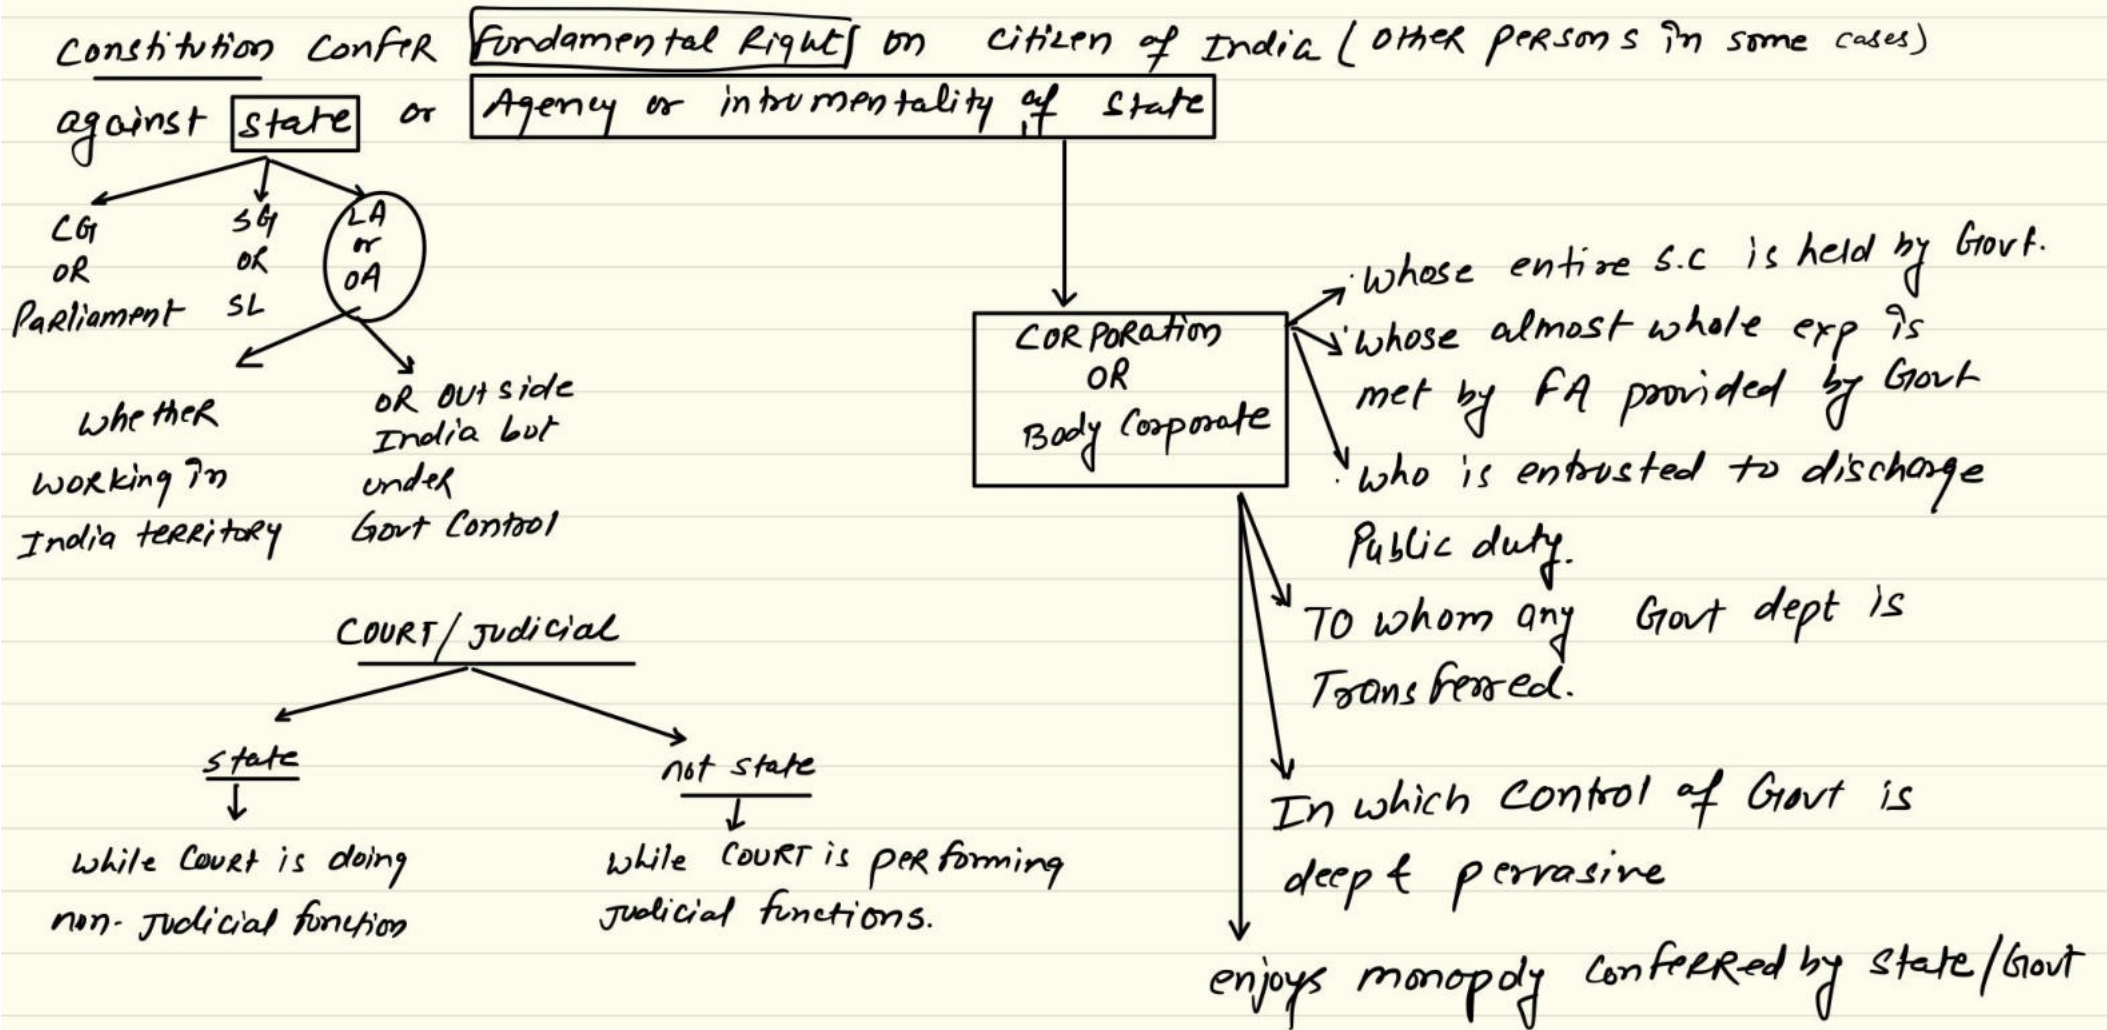 Constitution Confer Fundamental Right on citizen of India (other persons in some cases)
against state or Agency or intrumentality of State
CG
OR
Parliament
SG
OR
SL
LA
or
OA
whether
working in
India territory
OR outside
India but
under
Govt Control
CORPORation
OR
Body Corporate
. whose entire S.C is held by Govt.
. whose almost whole exp is
met by FA provided by Govt
. who is entrusted to discharge
Public duty.
To whom any Govt dept is
Transferred.
In which control of Govt is
deep & pervasive
enjoys monopoly conferred by state/Govt
COURT/Judicial
state
while Court is doing
non-Judicial function
not state
while COURT is performing
Judicial functions.